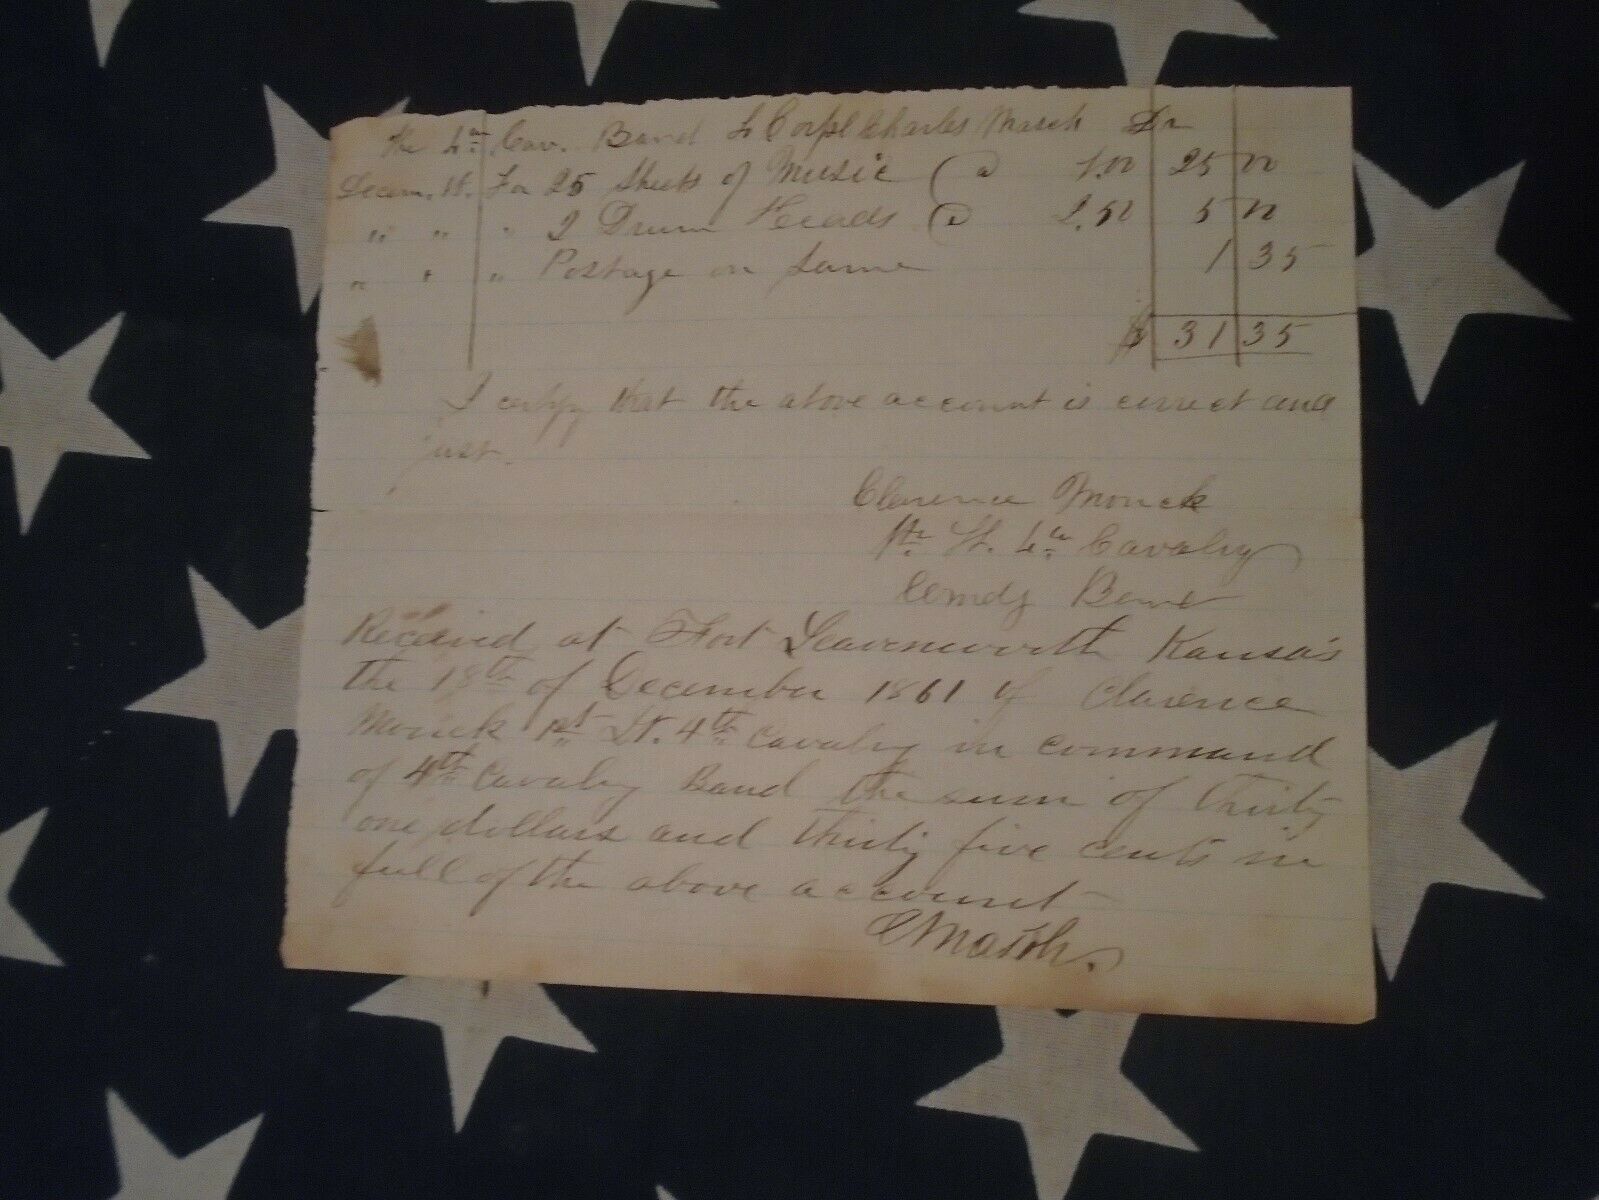 The 4th Cav. Band To Corpl Charles March Dr
Decem. 18. For 25 Sheets of Music @ 1.00 25 00
" " " 2 Drum Heads @ 2.50 5 00
" " " Postage on same 1 35
$ 31 35
I certify that the above account is correct and
just.
Clarence Mauck
1st Lt. 4th Cavalry
Comdg Band
Received at Fort Leavenworth Kansas
the 18th of December 1861 of Clarence
Mauck 1st Lt. 4th Cavalry in command
of 4th Cavalry Band the sum of thirty
one dollars and thirty five cents in
full of the above account
C March.